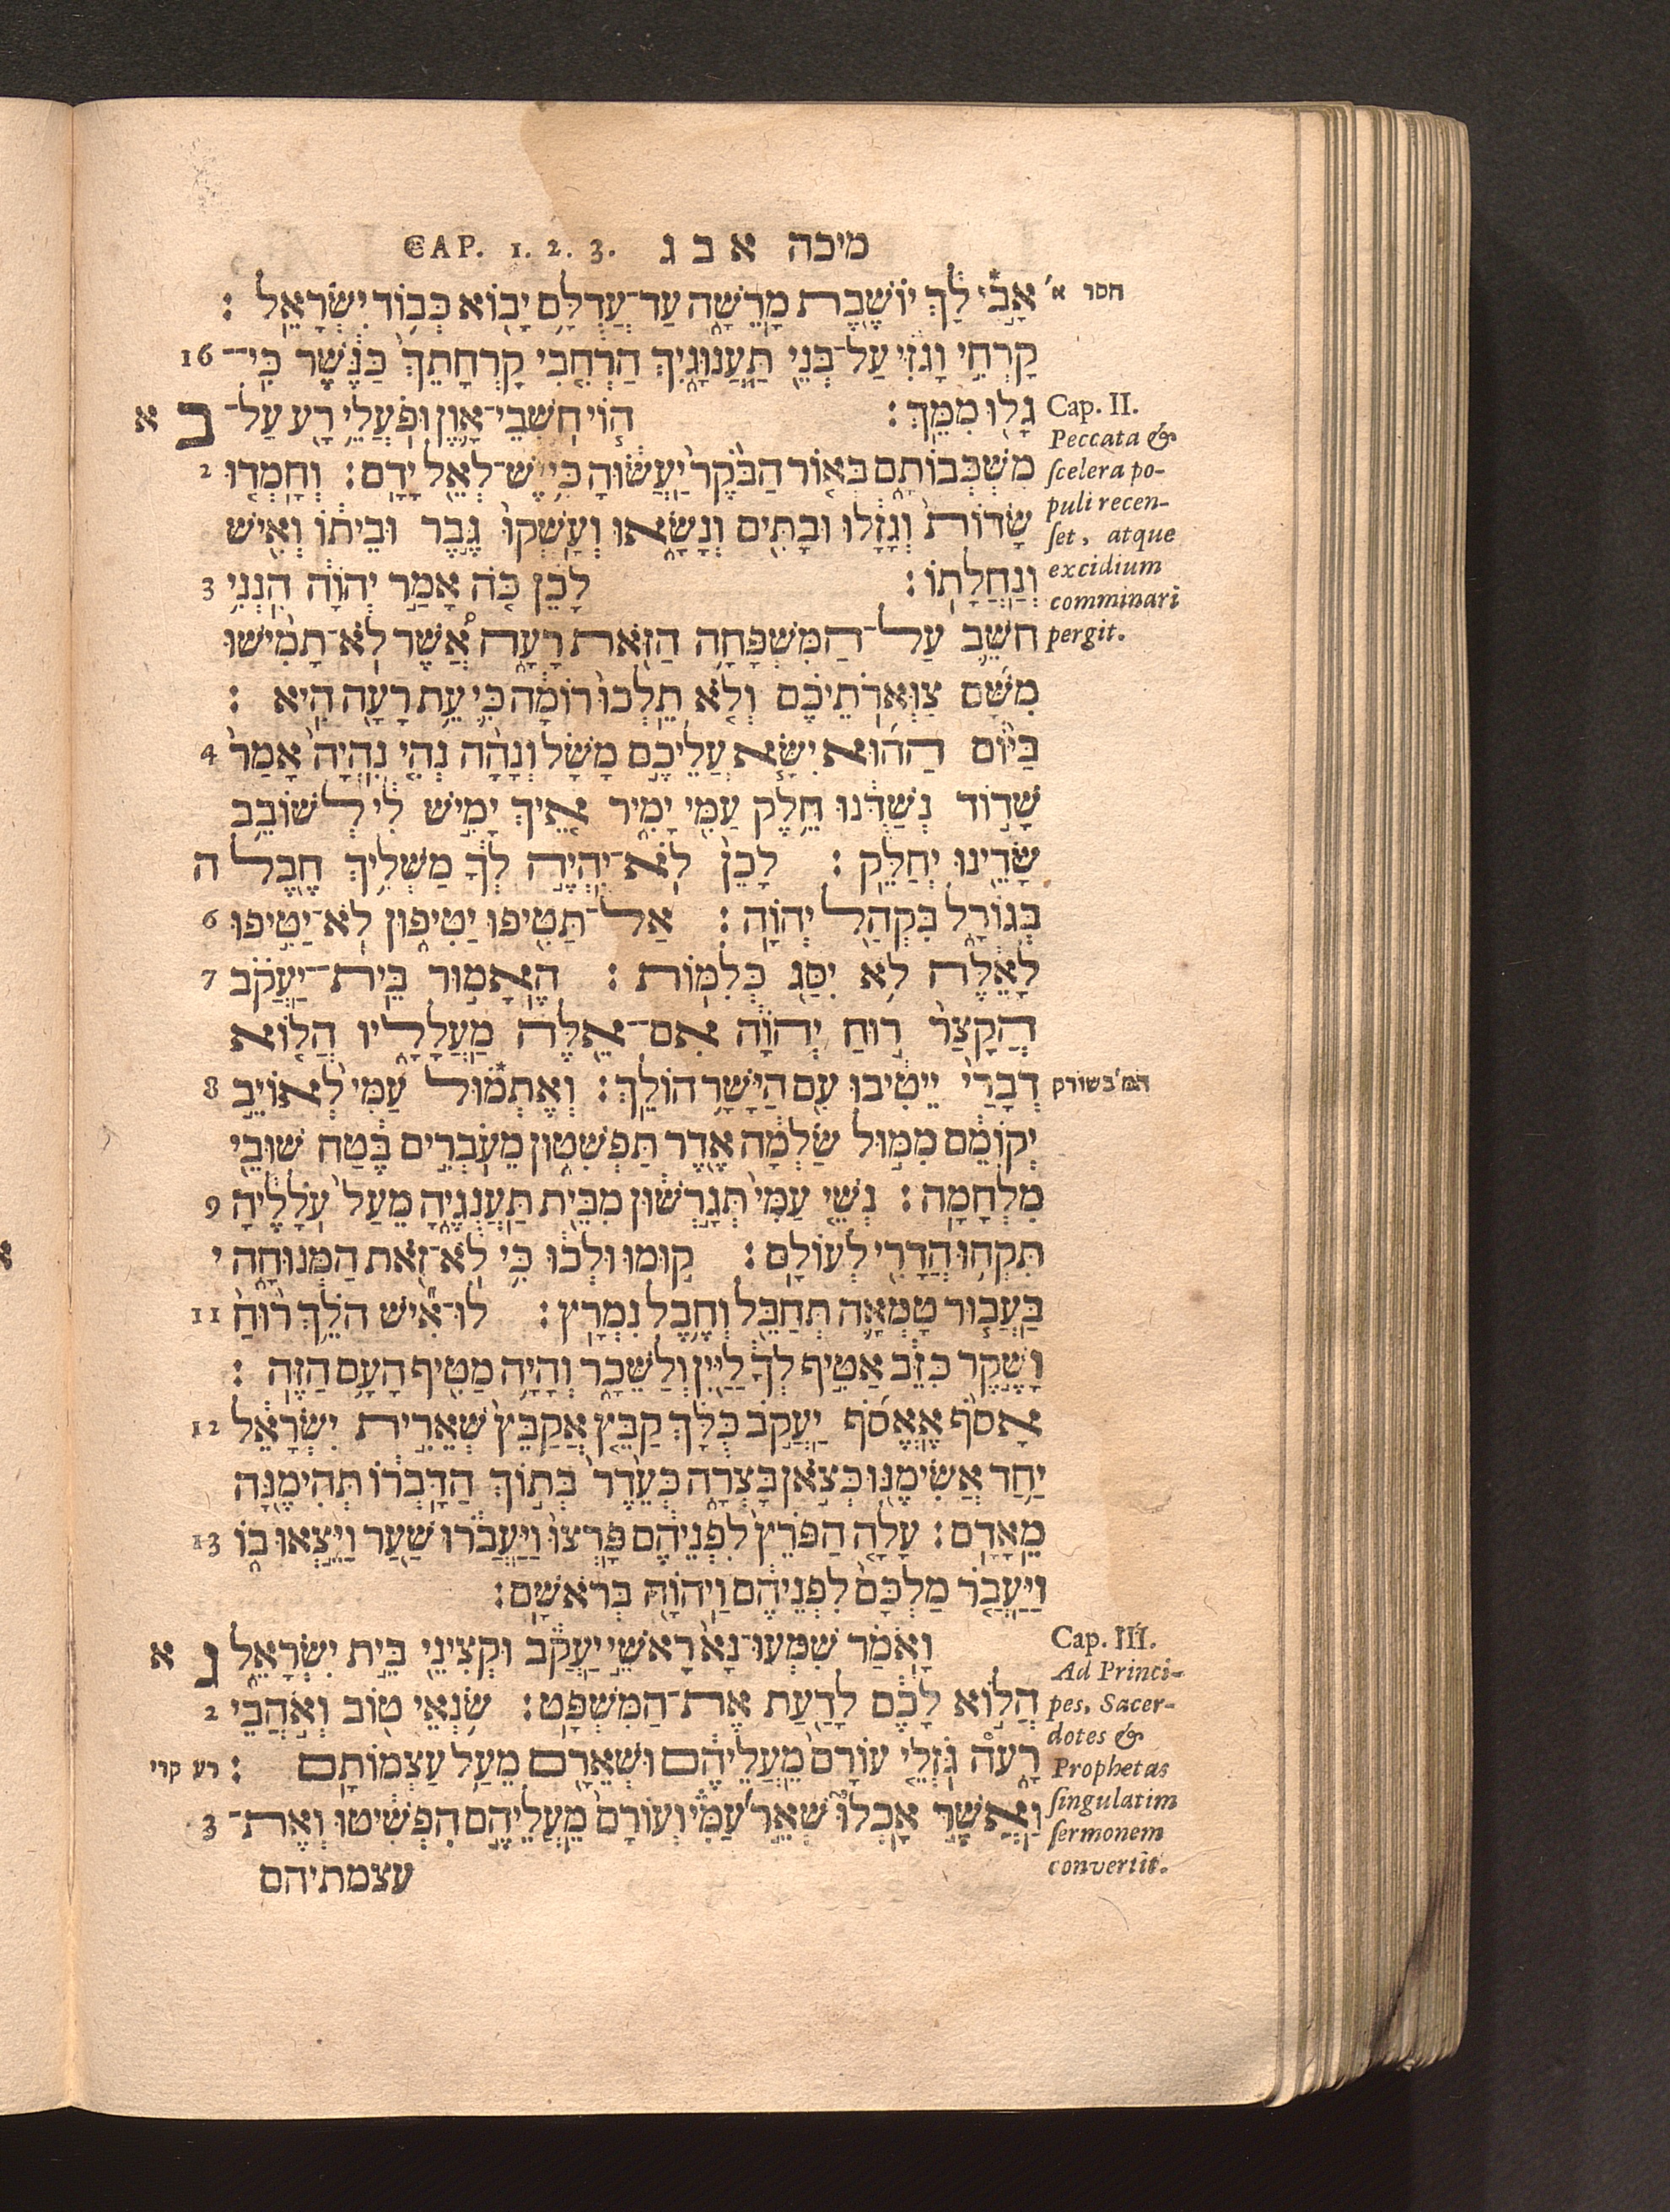 מיכה א ב ג CAP. 1. 2. 3.
אָבִ֣י לָ֔ךְ יוֹשֶׁ֖בֶת מָֽרֵשָׁ֑ה עַד־עֲדֻלָּ֥ם יָב֖וֹא כְּב֥וֹד יִשְׂרָאֵֽל׃ חסר א׳
קָרְחִ֣י וָגֹ֔זִּי עַל־בְּנֵ֖י תַּֽעֲנוּגָ֑יִךְ הַרְחִ֤בִי קָרְחָתֵךְ֙ כַּנֶּ֔שֶׁר כִּֽי־ 16
גָל֖וּ מִמֵּֽךְ׃ ב הוֹי חֹֽשְׁבֵי־אָ֛וֶן וּפֹ֥עֲלֵי רָ֖ע עַל־ א
מִשְׁכְּבוֹתָ֑ם בְּא֤וֹר הַבֹּ֨קֶר֙ יַֽעֲשׂ֔וּהָ כִּ֥י יֶשׁ־לְאֵ֖ל יָדָֽם׃ וְחָֽמְד֤וּ 2
שָׂדוֹת֙ וְגָזָ֔לוּ וּבָתִּ֖ים וְנָשָׂ֑אוּ וְעָֽשְׁקוּ֙ גֶּ֣בֶר וּבֵית֔וֹ וְאִ֖ישׁ
וְנַֽחֲלָתֽוֹ׃ לָכֵ֗ן כֹּ֚ה אָמַ֣ר יְהוָֹ֔ה הִֽנְנִ֥י 3
חֹשֵׁ֛ב עַל־הַמִּשְׁפָּחָ֥ה הַזֹּ֖את רָעָ֑ה אֲשֶׁר֩ לֹֽא־תָמִ֨ישׁוּ
מִשָּׁ֜ם צַוְּאֽרֹתֵיכֶ֗ם וְלֹ֤א תֵֽלְכוּ֙ רוֹמָ֔ה כִּ֛י עֵ֥ת רָעָ֖ה הִֽיא׃
בַּיּ֨וֹם הַה֜וּא יִשָּׂ֧א עֲלֵיכֶ֣ם מָשָׁ֗ל וְנָהָ֨ה נְהִ֤י נִֽהְיָה֙ אָמַר֙ 4
שָׁד֣וֹד נְשַׁדֻּ֔נוּ חֵ֥לֶק עַמִּ֖י יָמִ֑יר אֵ֚יךְ יָמִ֣ישׁ לִ֔י לְשׁוֹבֵ֥ב
שָׂדֵ֖ינוּ יְחַלֵּֽק׃ לָכֵן֙ לֹֽא־יִֽהְיֶ֣ה לְךָ֔ מַשְׁלִ֥יךְ חֶ֖בֶל ה
בְּגוֹרָ֑ל בִּקְהַ֖ל יְהוָֹֽה׃ אַל־תַּטִּ֖פוּ יַטִּיפ֑וּן לֹֽא־יַטִּ֣פוּ 6
לָאֵ֔לֶּה לֹ֥א יִסַּ֖ג כְּלִמּֽוֹת׃ הֶֽאָמ֣וּר בֵּֽית־יַֽעֲקֹ֗ב 7
הֲקָצַר֙ ר֣וּחַ יְהוָֹ֔ה אִם־אֵ֖לֶּה מַֽעֲלָלָ֑יו הֲל֤וֹא
דְבָרַי֙ יֵיטִ֔יבוּ עִ֖ם הַיָּשָׁ֥ר הוֹלֵֽךְ׃ וְאֶתְמ֗וּל עַמִּי֙ לְאוֹיֵ֣ב 8 המ׳ בשורק
יְקוֹמֵ֔ם מִמּ֣וּל שַׂלְמָ֔ה אֶ֖דֶר תַּפְשִׁט֑וּן מֵעֹֽבְרִ֣ים בֶּ֔טַח שׁוּבֵ֖י
מִלְחָמָֽה׃ נְשֵׁ֤י עַמִּי֙ תְּגָ֣רְשׁ֔וּן מִבֵּ֖ית תַּֽעֲנֻגֶ֑יהָ מֵעַל֙ עֹֽלָלֶ֔יהָ 9
תִּקְח֥וּ הֲדָרִ֖י לְעוֹלָֽם׃ ק֣וּמוּ וּלְכ֔וּ כִּ֥י לֹֽא־זֹ֖את הַמְּנוּחָ֑ה י
בַּֽעֲב֥וּר טָמְאָ֛ה תְּחַבֵּ֖ל וְחֶ֥בֶל נִמְרָֽץ׃ לוּ־אִ֞ישׁ הֹלֵ֥ךְ ר֨וּחַ֙ 11
וָשֶׁ֣קֶר כִּזֵּ֔ב אַטִּ֣ף לְךָ֔ לַיַּ֖יִן וְלַשֵּׁכָ֑ר וְהָיָ֥ה מַטִּ֖יף הָעָ֥ם הַזֶּֽה׃
אָסֹ֨ף אֶֽאֱסֹ֜ף יַֽעֲקֹ֣ב כֻּלָּ֗ךְ קַבֵּ֤ץ אֲקַבֵּץ֙ שְׁאֵרִ֣ית יִשְׂרָאֵ֔ל 12
יַ֥חַד אֲשִׂימֶ֖נּוּ כְּצֹ֣אן בָּצְרָ֑ה כְּעֵ֨דֶר֙ בְּת֣וֹךְ הַדָּֽבְר֔וֹ תְּהִימֶ֖נָה
מֵֽאָדָֽם׃ עָלָ֤ה הַפֹּרֵץ֙ לִפְנֵיהֶ֔ם פָּֽרְצוּ֙ וַֽיַּעֲבֹ֔רוּ שַׁ֖עַר וַיֵּ֣צְאוּ ב֑וֹ 13
וַיַּֽעֲבֹ֤ר מַלְכָּם֙ לִפְנֵיהֶ֔ם וַֽיהוָֹ֖ה בְּרֹאשָֽׁם׃
ג וָֽאֹמַ֗ר שִׁמְעוּ־נָא֙ רָאשֵׁ֣י יַֽעֲקֹ֔ב וּקְצִינֵ֖י בֵּ֣ית יִשְׂרָאֵ֑ל א
הֲל֣וֹא לָכֶ֔ם לָדַ֖עַת אֶת־הַמִּשְׁפָּֽט׃ שֹׂ֥נְאֵי ט֖וֹב וְאֹ֣הֲבֵי 2
רָעָ֑ה גֹּֽזְלֵ֤י עוֹרָם֙ מֵֽעֲלֵיהֶ֔ם וּשְׁאֵרָ֖ם מֵעַ֥ל עַצְמוֹתָֽם׃ רע קרי
וַֽאֲשֶׁ֣ר אָֽכְלוּ֮ שְׁאֵ֣ר עַמִּי֒ וְעוֹרָם֙ מֵֽעֲלֵיהֶ֣ם הִפְשִׁ֔יטוּ וְאֶת־ 3
עצמתיהם
Cap. II.
Peccata &
scelera po-
puli recen-
set, atque
excidium
comminari
pergit.
Cap. III.
Ad Princi-
pes, Sacer-
dotes &
Prophetas
singulatim
sermonem
convertit.